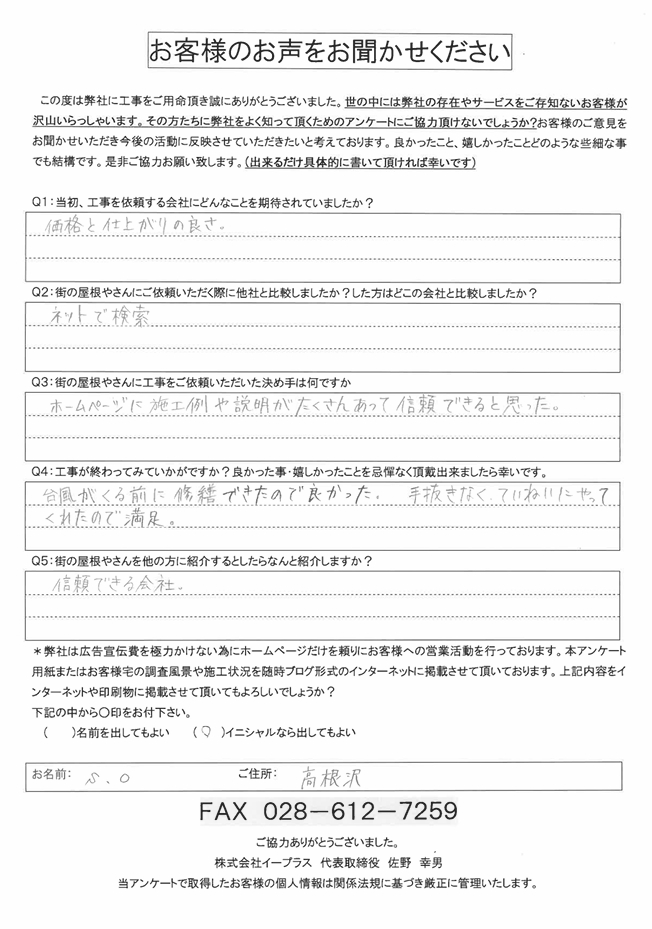 お客様のお声をお聞かせください
この度は弊社に工事をご用命頂き誠にありがとうございました。世の中には弊社の存在やサービスをご存知ないお客様が
沢山いらっしゃいます。その方たちに弊社をよく知って頂くためのアンケートにご協力頂けないでしょうか?お客様のご意見を
お聞かせいただき今後の活動に反映させていただきたいと考えております。良かったこと、嬉しかったことどのような些細な事
でも結構です。是非ご協力お願い致します。(出来るだけ具体的に書いて頂ければ幸いです)
Q1:当初、工事を依頼する会社にどんなことを期待されていましたか?
価格と仕上がりの良さ。
Q2:街の屋根やさんにご依頼いただく際に他社と比較しましたか?した方はどこの会社と比較しましたか?
ネットで検索
Q3:街の屋根やさんに工事をご依頼いただいた決め手は何ですか
ホームページに施工例や説明がたくさんあって信頼できると思った。
Q4:工事が終わってみていかがですか?良かった事・嬉しかったことを忌憚なく頂戴出来ましたら幸いです。
台風がくる前に修繕できたので良かった。 手抜きなく、ていねいにやって
くれたので満足。
Q5:街の屋根やさんを他の方に紹介するとしたらなんと紹介しますか?
信頼できる会社。
＊弊社は広告宣伝費を極力かけない為にホームページだけを頼りにお客様への営業活動を行っております。本アンケート
用紙またはお客様宅の調査風景や施工状況を随時ブログ形式のインターネットに掲載させて頂いております。上記内容をイ
ンターネットや印刷物に掲載させて頂いてもよろしいでしょうか?
下記の中から〇印をお付下さい。
( )名前を出してもよい (○)イニシャルなら出してもよい
お名前: S.O ご住所: 高根沢
FAX 028－612－7259
ご協力ありがとうございました。
株式会社イープラス 代表取締役 佐野 幸男
当アンケートで取得したお客様の個人情報は関係法規に基づき厳正に管理いたします。